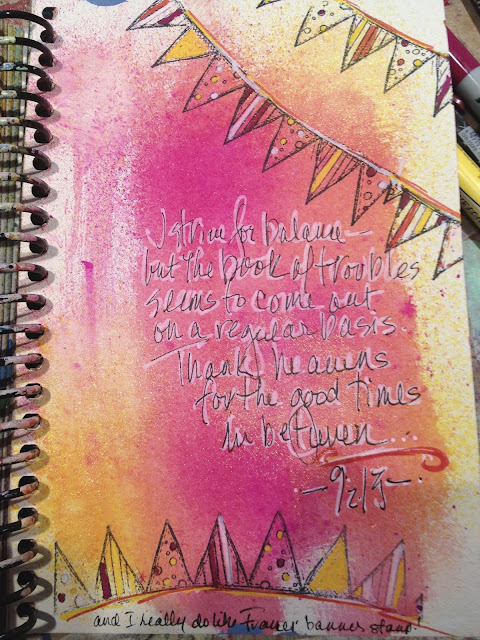 I strive for balance—
but the book of troubles
seems to come out
on a regular basis.
Thank heavens
for the good times
in between...
and I really do like banner stamp!